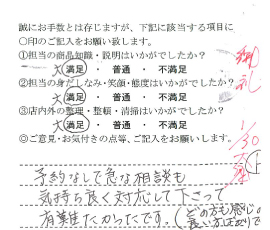 誠にお手数とは存じますが、下記に該当する項目に
○印のご記入をお願い致します。
①担当の商品知識・説明はいかがでしたか?
大満足 ・ 普通 ・ 不満足
②担当の身だしなみ・笑顔・態度はいかがでしたか?
大満足 ・ 普通 ・ 不満足
③店内外の整理・整頓・清掃はいかがでしたか?
大満足 ・ 普通 ・ 不満足
◎ご意見・お気付きの点等、ご記入をお願いします。
御礼
1/30
予約なしで急な相談も
気持ち良く対応して下さって
有難たかったです。(どの方も感じの
良い方ばかりで